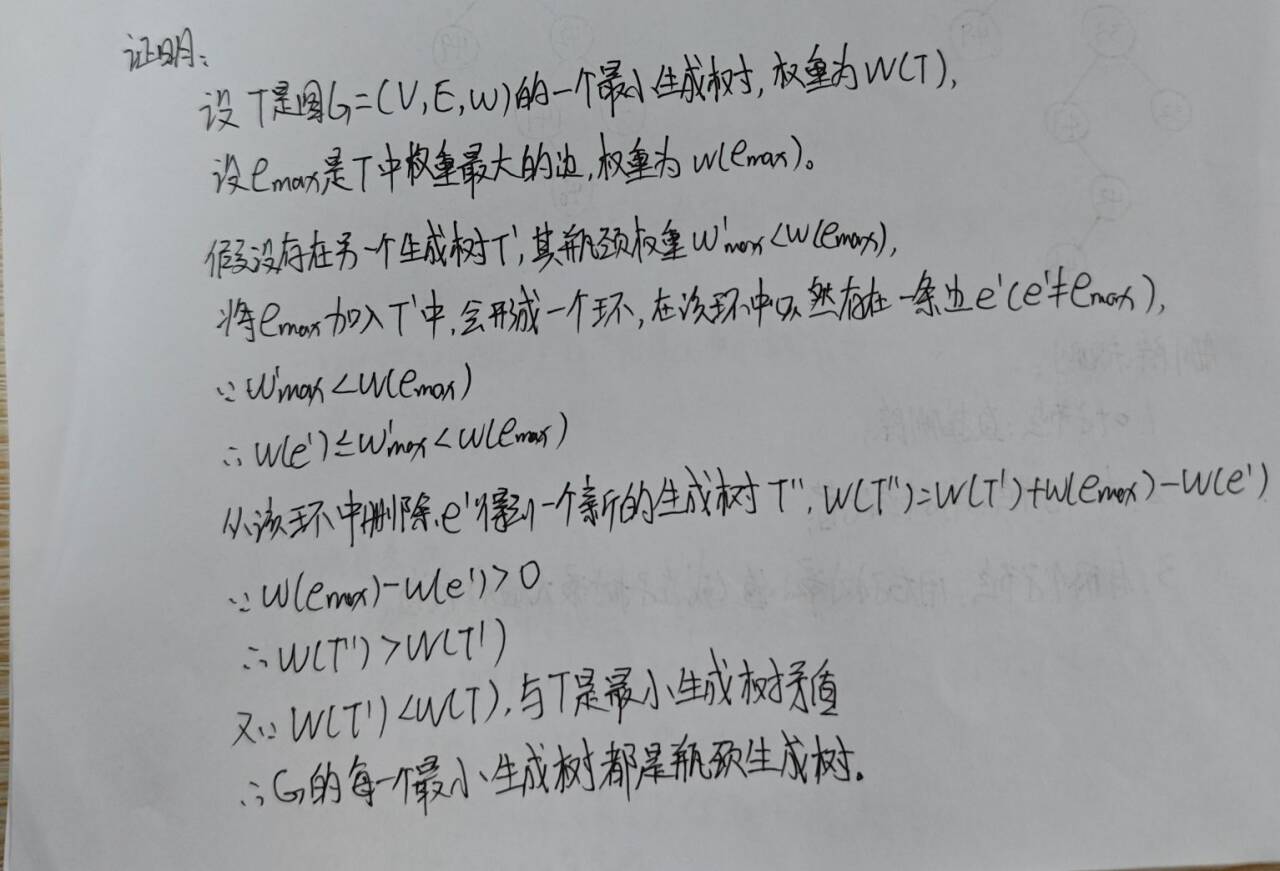 证明:
设T是图G=(V,E,w)的一个最小生成树,权重为W(T),
设emax是T中权重最大的边,权重为w(emax)。
假设存在另一个生成树T',其瓶颈权重W'max<w(emax),
将emax加入T'中,会形成一个环,在该环中必然存在一条边e'(e'≠emax),
∵W'max<w(emax)
∴w(e')≤W'max<w(emax)
从该环中删除e'得到一个新的生成树T",W(T")=W(T')+w(emax)-w(e')
∵w(emax)-w(e')>0
∴W(T")>W(T')
又∵W(T')<W(T),与T是最小生成树矛盾
∴G的每一个最小生成树都是瓶颈生成树。